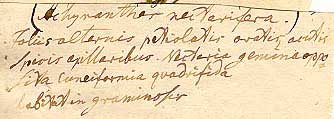 (Achyranthes nectarifera.)
Foliis alternis petiolatis ovatis, acutis
Spicis axillaribus. Nectaria gemina oppo
sita cuneiformia quadrifida
habitat in graminosis